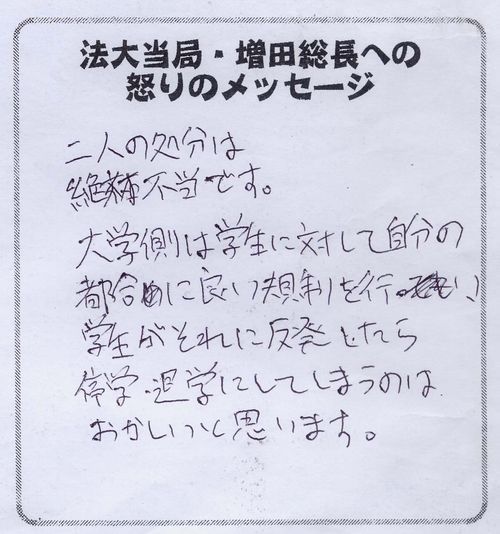 法大当局・増田総長への
怒りのメッセージ
二人の処分は
絶対不当です。
大学側は学生に対して自分の
都合に良い規制を行い、
学生がそれに反発したら
停学・退学にしてしまうのは
おかしいと思います。